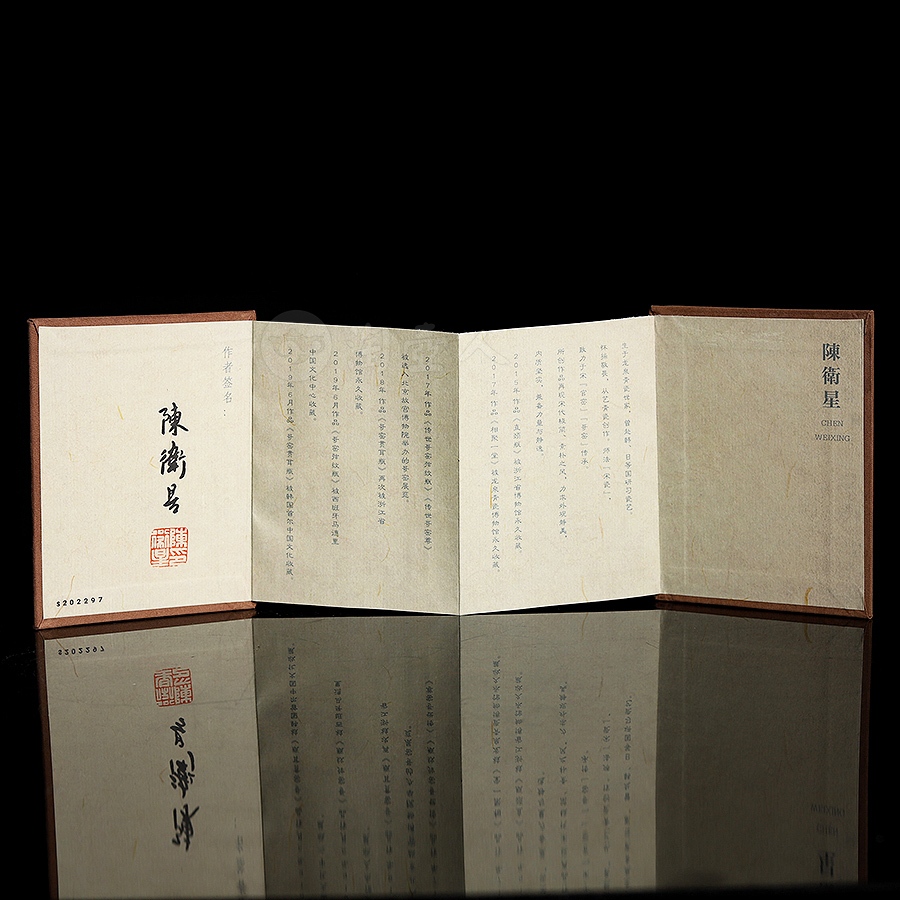 陳衛星
CHEN
WEIXING
生于龙泉青瓷世家，曾赴韩、日等国研习瓷艺。
休操敬畏，从艺青瓷创作，师法「宋瓷」，
致力于宋「官窑」「哥窑」传承。
所创作品再现宋代极简、素朴之风，力求外观静美、
内质坚实，兼备力量与静逸。
2015年作品《直颈瓶》被浙江省博物馆永久收藏。
2017年作品《相聚一堂》被龙泉青瓷博物馆永久收藏。
2017年作品《传世哥窑弦纹瓶》《传世哥窑尊》
被选入北京故宫博物院举办的哥窑展览。
2018年作品《哥窑贯耳瓶》再次被浙江省
博物馆永久收藏。
2019年6月作品《哥窑弦纹瓶》被西班牙马德里
中国文化中心收藏。
2019年6月作品《哥窑贯耳瓶》被韩国首尔中国文化收藏。
作者签名：
陳衛星
S202297